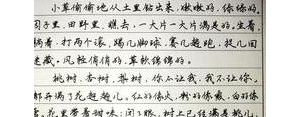 小草偷偷地从土里钻出来，嫩嫩的，绿绿的。
园子里，田野里，瞧去，一大片一大片满是的。坐着，
躺着，打两个滚，踢几脚球，赛几趟跑，捉几回
迷藏。风轻悄悄的，草软绵绵的。
桃树、杏树、梨树，你不让我，我不让你，
都开满了花赶趟儿。红的像火，粉的像霞，白的像
雪。花里带着甜味；闭了眼，树上已经满是桃儿、